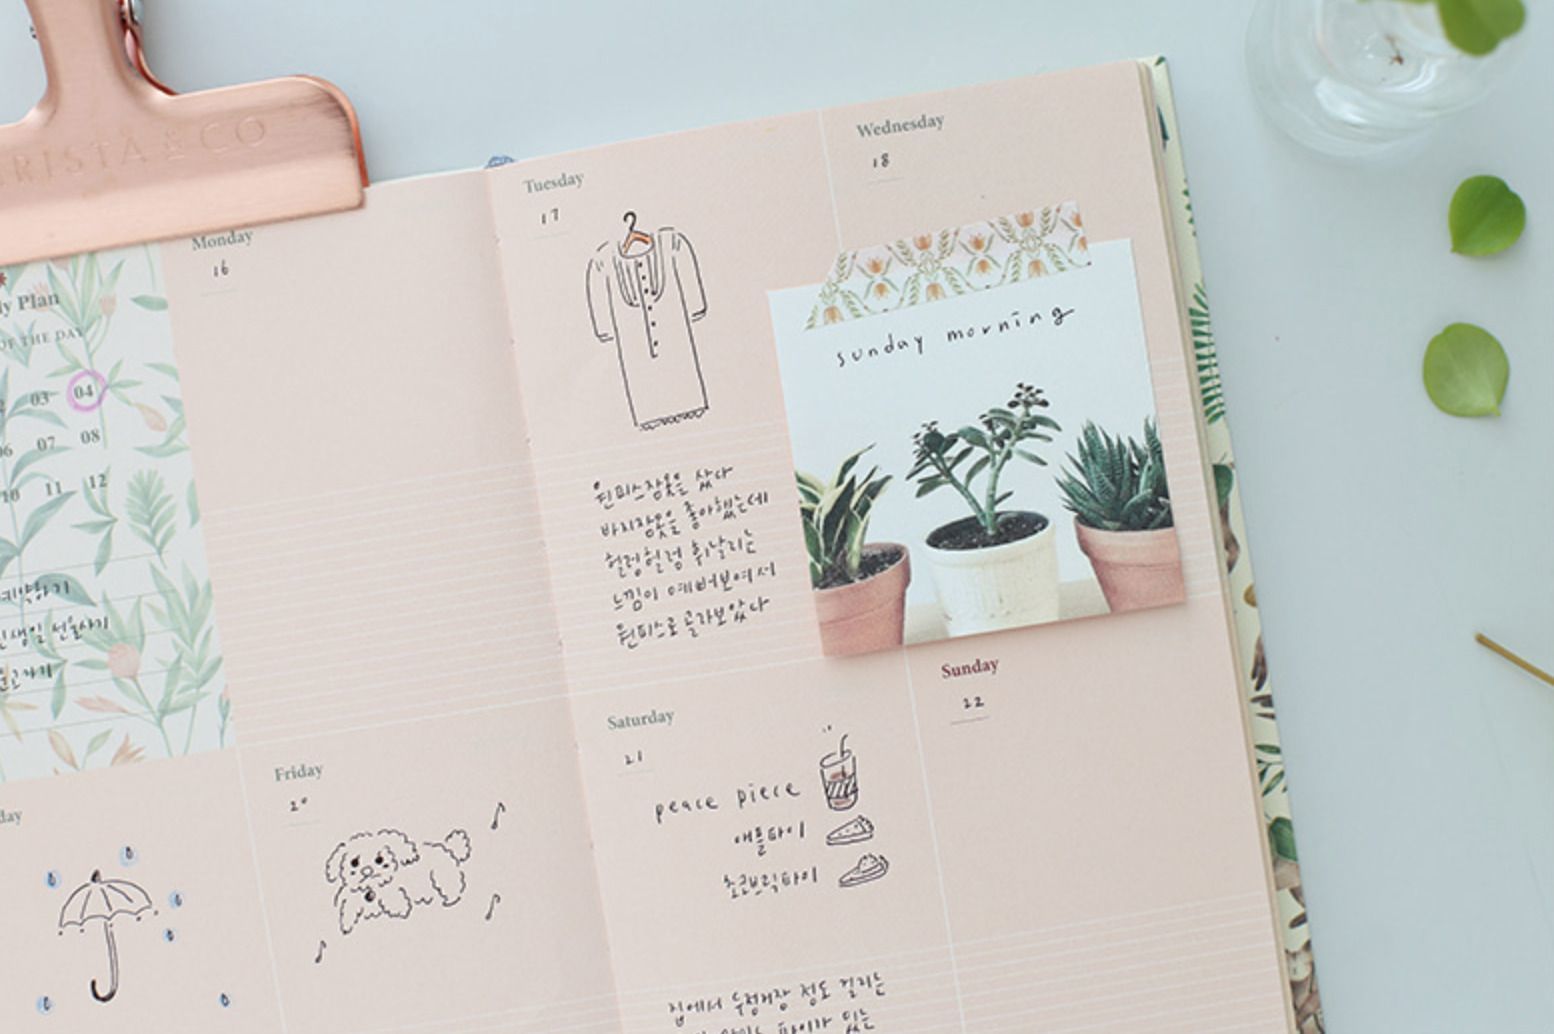 RISTA & CO
Monday
16
Tuesday
17
Wednesday
18
ly Plan
OF THE DAY
03 04
06 07 08
10 11 12
예약하기
생일 선물사기
sunday morning
원피스잠옷을 샀다
바지잠옷을 좋아했는데
헐렁헐렁 휘날리는
느낌이 예뻐보여서
원피스로 골라보았다
day
Friday
20
Saturday
21
peace piece
애플타이
초코브릭타이
집에서 두정거장 정도 걸리는
있는
Sunday
22